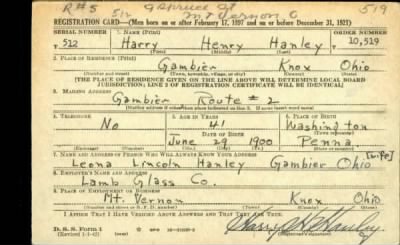 R#5 9 Spruce St 519
512 Mt Vernon O
REGISTRATION CARD—(Men born on or after February 17, 1897 and on or before December 31, 1921)
SERIAL NUMBER 1. NAME (Print) ORDER NUMBER
T 512 Harry Henry Hanley 10,519
(First) (Middle) (Last)
2. PLACE OF RESIDENCE (Print)
Gambier Knox Ohio
(Number and street) (Town, township, village, or city) (County) (State)
[THE PLACE OF RESIDENCE GIVEN ON THE LINE ABOVE WILL DETERMINE LOCAL BOARD
JURISDICTION; LINE 2 OF REGISTRATION CERTIFICATE WILL BE IDENTICAL]
3. MAILING ADDRESS
Gambier Route #2
[Mailing address if other than place indicated on line 2. If same insert word same]
4. TELEPHONE 5. AGE IN YEARS 6. PLACE OF BIRTH
No 41 Washington
DATE OF BIRTH (Town or county)
June 29 1900 Penna
(Exchange) (Number) (Mo.) (Day) (Yr.) (State or country)
7. NAME AND ADDRESS OF PERSON WHO WILL ALWAYS KNOW YOUR ADDRESS
[wife]
Leona Lincoln Hanley Gambier Ohio
8. EMPLOYER'S NAME AND ADDRESS
Lamb Glass Co.
9. PLACE OF EMPLOYMENT OR BUSINESS
Mt. Vernon Knox Ohio
(Number and street or R. F. D. number) (Town) (County) (State)
I AFFIRM THAT I HAVE VERIFIED ABOVE ANSWERS AND THAT THEY ARE TRUE.
D. S. S. Form 1
(Revised 1-1-42) (over)
Harry H Hanley